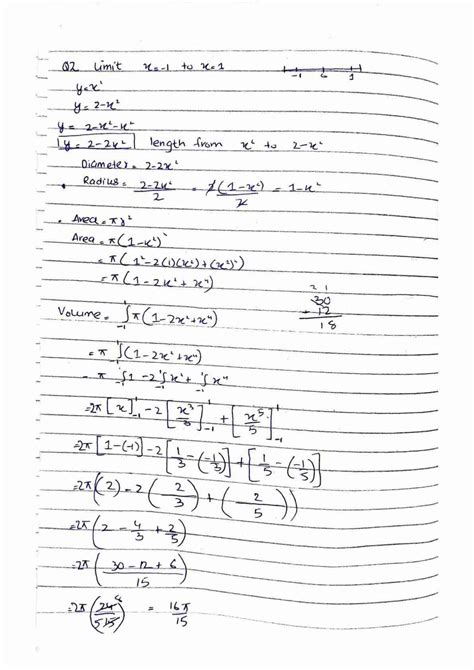 Q2 Limit x=-1 to x=1
-1 0 1
y=x²
y=2-x²
y = 2-x²-x²
y = 2-2x² length from x² to 2-x²
Diameter = 2-2x²
Radius = 2-2x²/2 = 2(1-x²)/2 = 1-x²
• Area = πr²
Area = π(1-x²)²
= π(1²-2(1)(x²)+(x²)²)
= π(1-2x²+x⁴)
2 1
30
- 12
18
Volume = ₋₁∫¹ π(1-2x²+x⁴)
= π ₋₁∫¹(1-2x²+x⁴)
= π ₋₁∫¹1 - 2₋₁∫¹x² + ₋₁∫¹x⁴
=2π [x]¹₋₁ - 2[x³/3]¹₋₁ + [x⁵/5]¹₋₁
=2π [1-(-1)] - 2[1/3 - (-1/3)] + [1/5 - (-1/5)]
=2π (2) = 2(2/3) + (2/5))
=2π (2 - 4/3 + 2/5)
=2π (30-12+6/15)
=2π (24/15) = 16π/15